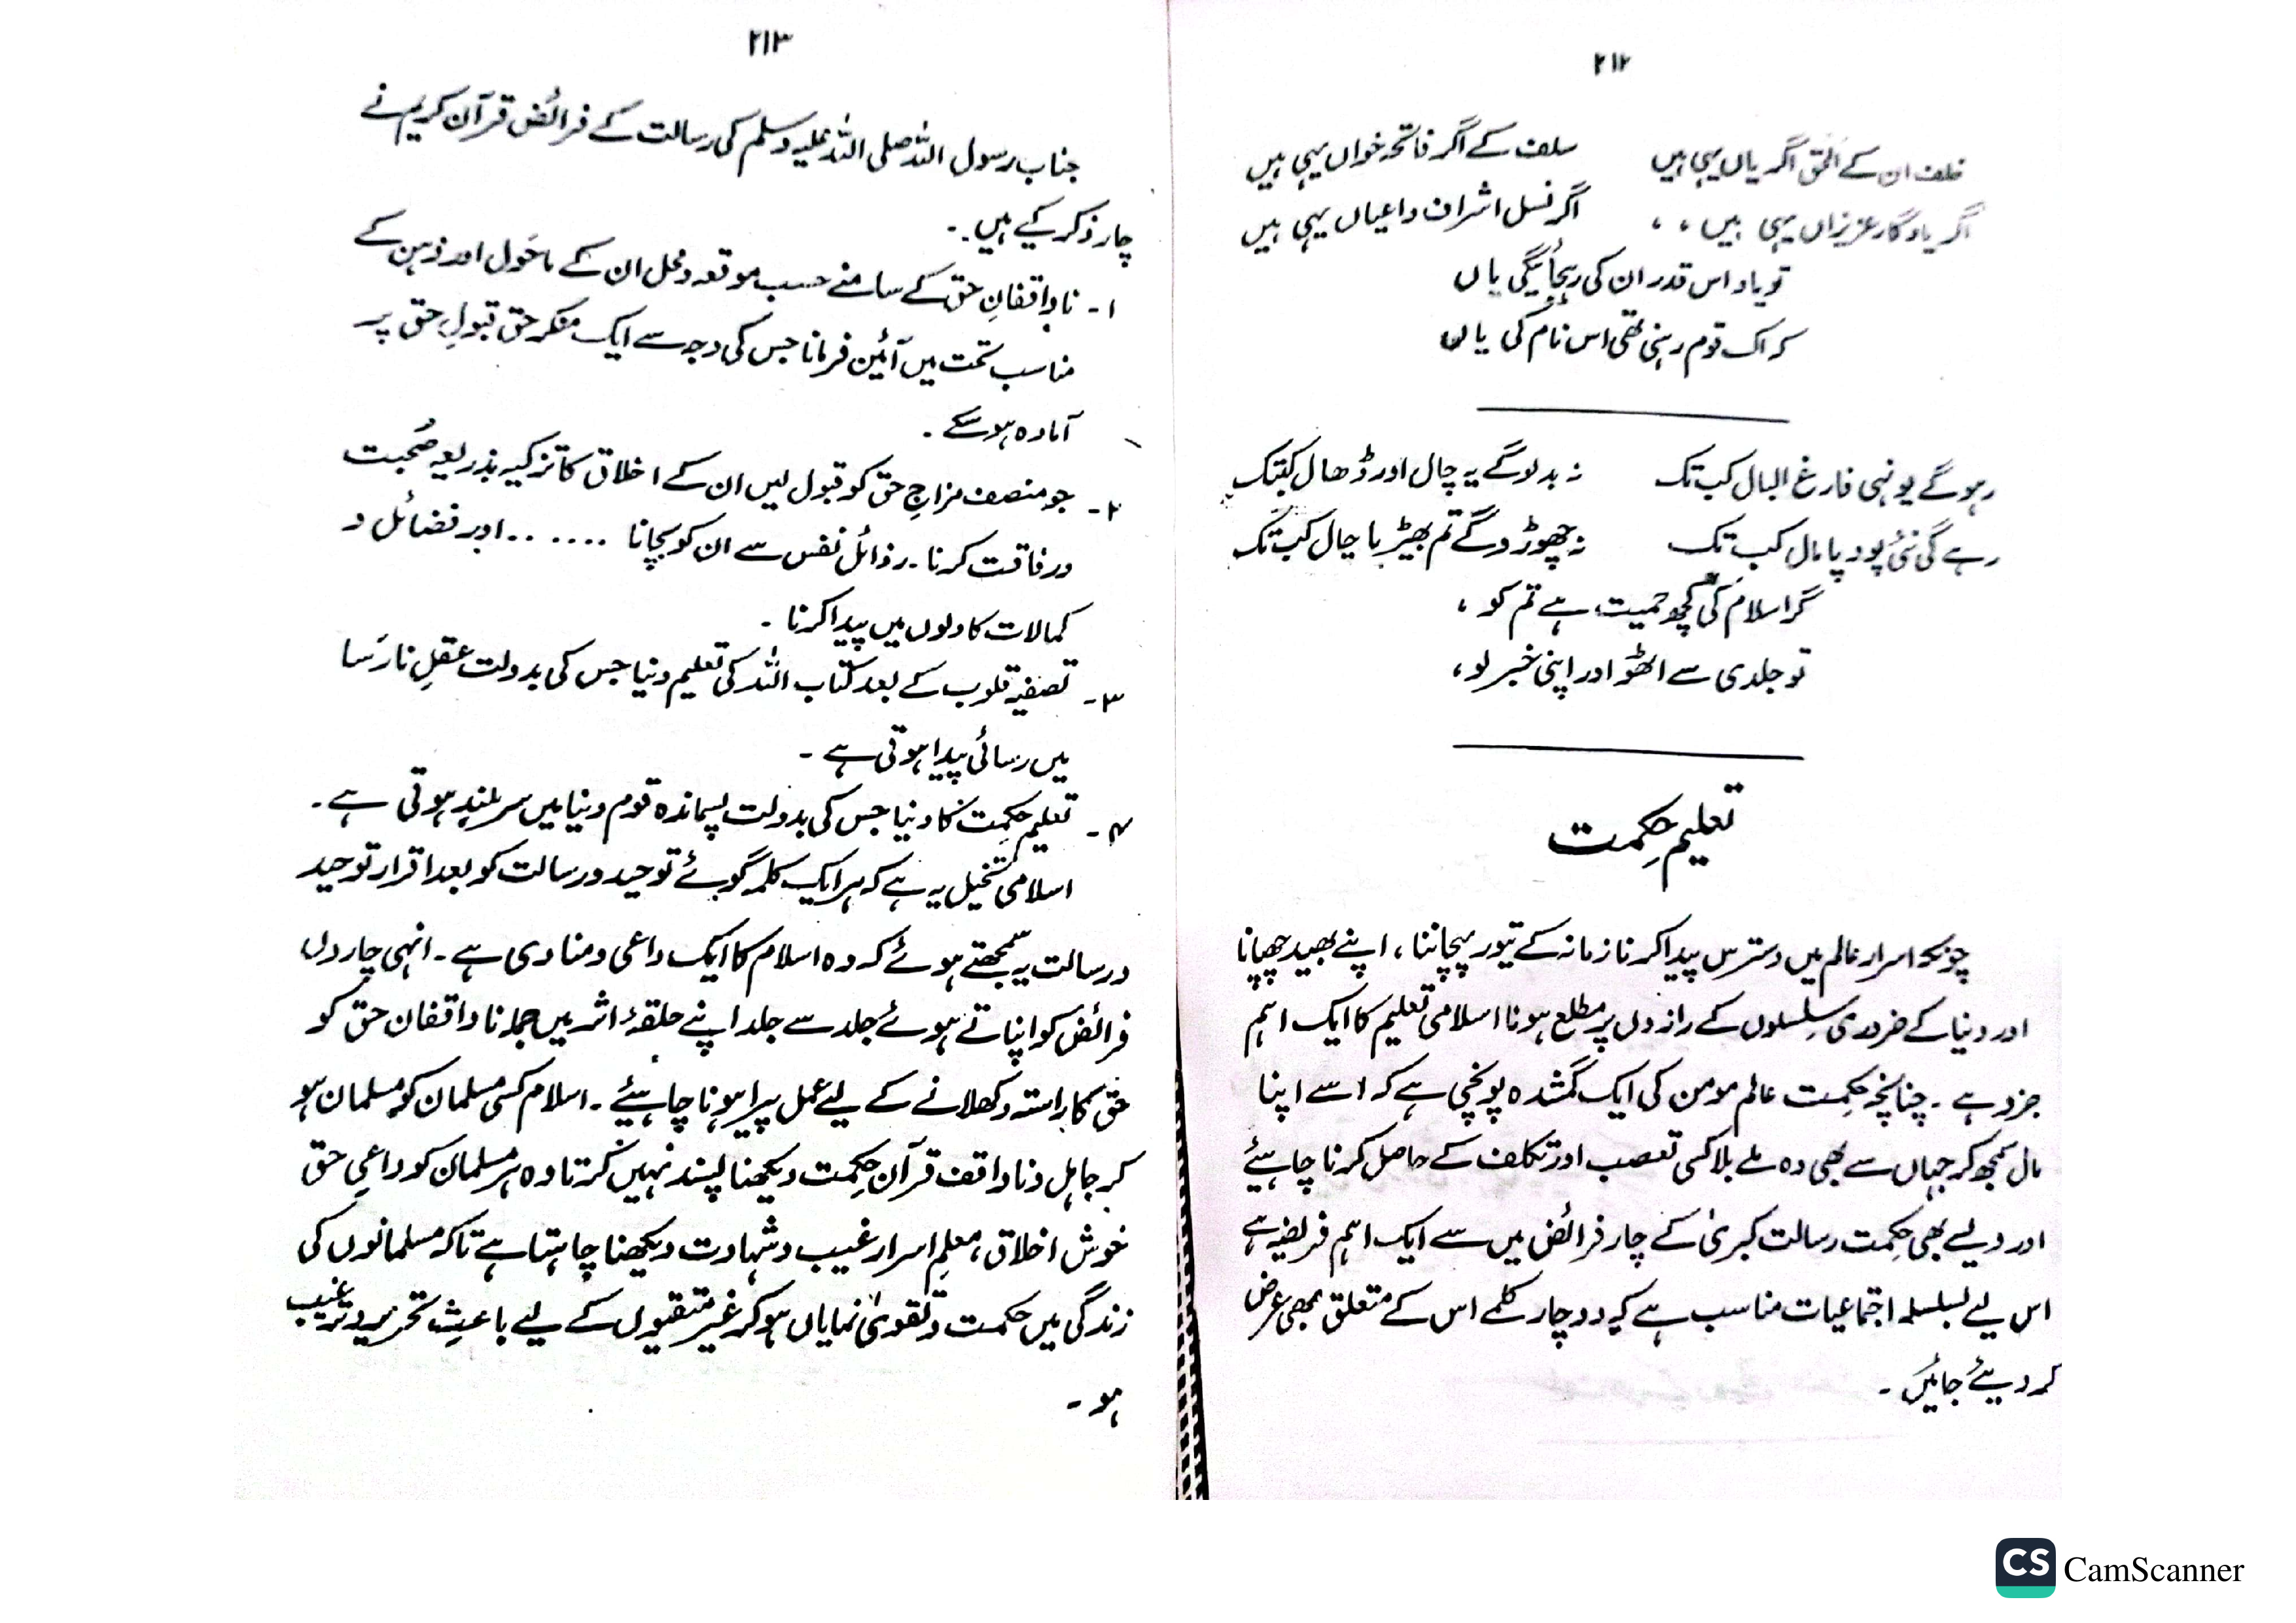 ۲۱۲
خلف ان کے الحق اگر یاں یہی ہیں سلف کے اگر فاتحہ خواں یہی ہیں
اگر یادگار عزیزاں یہی ہیں ، ، اگر نسل اشراف و اعیاں یہی ہیں
تو یاد اس قدر ان کی رہجائیگی یاں
کہ اک قوم رہتی تھی اس نام کی یاں
رہو گے یونہی فارغ البال کب تک نہ بدلو گے یہ چال اور ڈھال کبتک
رہے گی نئی پود پامال کب تک نہ چھوڑو گے تم بھیڑیا چال کب تک
گر اسلام کی کچھ حمیت ہے تم کو ،
تو جلدی سے اٹھو اور اپنی خبر لو ،
تعلیمِ حِکمت
چونکہ اسرار عالم میں دسترس پیدا کرنا زمانہ کے تیور پہچاننا ، اپنے بھید چھپانا
اور دنیا کے ضروری سِلسلوں کے رازوں پر مطلع ہونا اسلامی تعلیم کا ایک اہم
جزو ہے ۔ چنانچہ حِکمت عالم مومن کی ایک گمشدہ پونجی ہے کہ اسے اپنا
مال سمجھ کر جہاں سے بھی وہ ملے بلا کسی تعصب اور تکلف کے حاصل کرنا چاہیئے
اور ویسے بھی حِکمت رسالت کبریٰ کے چار فرائض میں سے ایک اہم فریضہ ہے
اس لیے بسلسلہ اجتماعیات مناسب ہے کہ دو چار کلمے اس کے متعلق بھی عرض
کر دیئے جائیں ۔
۲۱۳
جناب رسول اللہ صلی اللہ علیہ وسلم کی رسالت کے فرائض قرآن کریم نے
چار ذکر کیے ہیں ۔
۱۔ ناواقفانِ حق کے سامنے حسب موقعہ و محل ان کے ماحول اور ذہن کے
مناسب تحت میں آئین فرمانا جس کی وجہ سے ایک منکر حق قبولِ حق پر
آمادہ ہو سکے ۔
۲۔ جو منصف مزاج حق کو قبول لیں ان کے اخلاق کا تزکیہ بذریعہ صُحبت
ورفاقت کرنا ۔ رذائل نفس سے ان کو بچانا ....... اور فضائل و
کمالات کا دلوں میں پیدا کرنا ۔
۳۔ تصفیہ قلوب کے بعد کتاب اللہ کی تعلیم دینا جس کی بدولت عقلِ نارَسا
میں رسائی پیدا ہوتی ہے ۔
۴۔ تعلیم حِکمت کا دینا جس کی بدولت پسماندہ قوم دنیا میں سر بلند ہوتی ہے ۔
اسلامی تخیل یہ ہے کہ ہر ایک کلمہ گوئے توحید و رسالت کو بعد اقرار توحید
و رسالت یہ سمجھتے ہوئے کہ وہ اسلام کا ایک داعی و منادی ہے ۔ انہی چاروں
فرائض کو اپناتے ہوئے جلد سے جلد اپنے حلقۂ اثر میں جملہ ناواقفان حق کو
حق کا راستہ دکھلانے کے لیے عمل پیرا ہونا چاہیئے ۔ اسلام کسی مسلمان کو مسلمان ہو
کر جاہل و ناواقف قرآن حِکمت دیکھنا پسند نہیں کرتا وہ ہر مسلمان کو داعیِ حق
خوش اخلاق ، معلمِ اسرار غیب و شہادت دیکھنا چاہتا ہے تاکہ مسلمانوں کی
زندگی میں حکمت و تقویٰ نمایاں ہو کر غیر متقیوں کے لیے باعثِ تحریر و ترغیب
ہو ۔
CS CamScanner